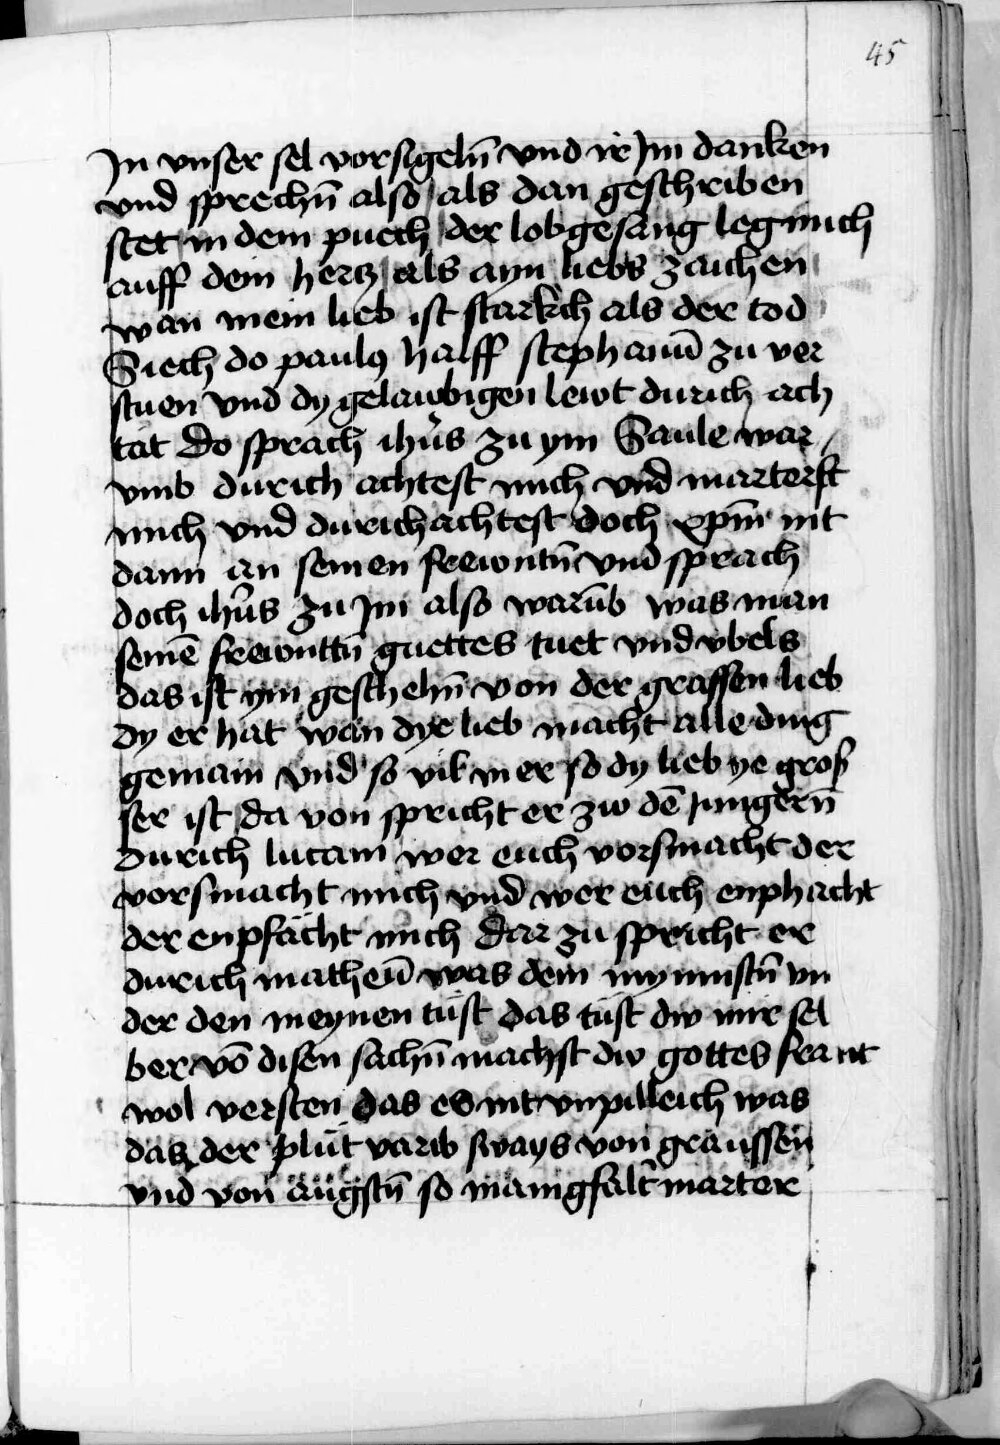 45
Jn vnser sel vorsigeln̄ vnd ir Jm danken
vnd sprechn̄ also als dan geschriben
stet in dem puech der lobgesang leg mich
auff dein hertz als ayn liebs zaichen
wan mein lieb ist starkch als der tod
Siech do paulꝰ halff stephanū zu ver
stuen vnd dy gelawbigen lewt durich ach
tät do sprach ihu᷒s zu ym Saule war
vmb durich achtest mich vnd marterst
mich vnd durichachtest doch xp̄m nit
dann an seinen frewntn̄ vnd sprach
doch ihūs zu Jm also warūb was man
seinē frewnttn̄ guettes tuet vnd vbels
das ist ym geschehn̄ von der grassen lieb
dy er hat wan dye lieb macht alle ding
gemain vnd so vil mer so dy lieb ye gros
ser ist da von spricht er zw dē Jungern̄
durich lucam wer euch vorsmacht der
vorsmacht mich vnd wer euch enphacht
der enpfächt mich dar zu spricht er
durich matheū was dem mynnistn̄ vn
der den meynen tüst das tüst dw mir sel
ber vō disen sachn̄ machst dw gottes frant
wol versten das es nit vnpilleich was
das der plüt varib sways von graussen
vnd von ängstn̄ so manigfalt marter